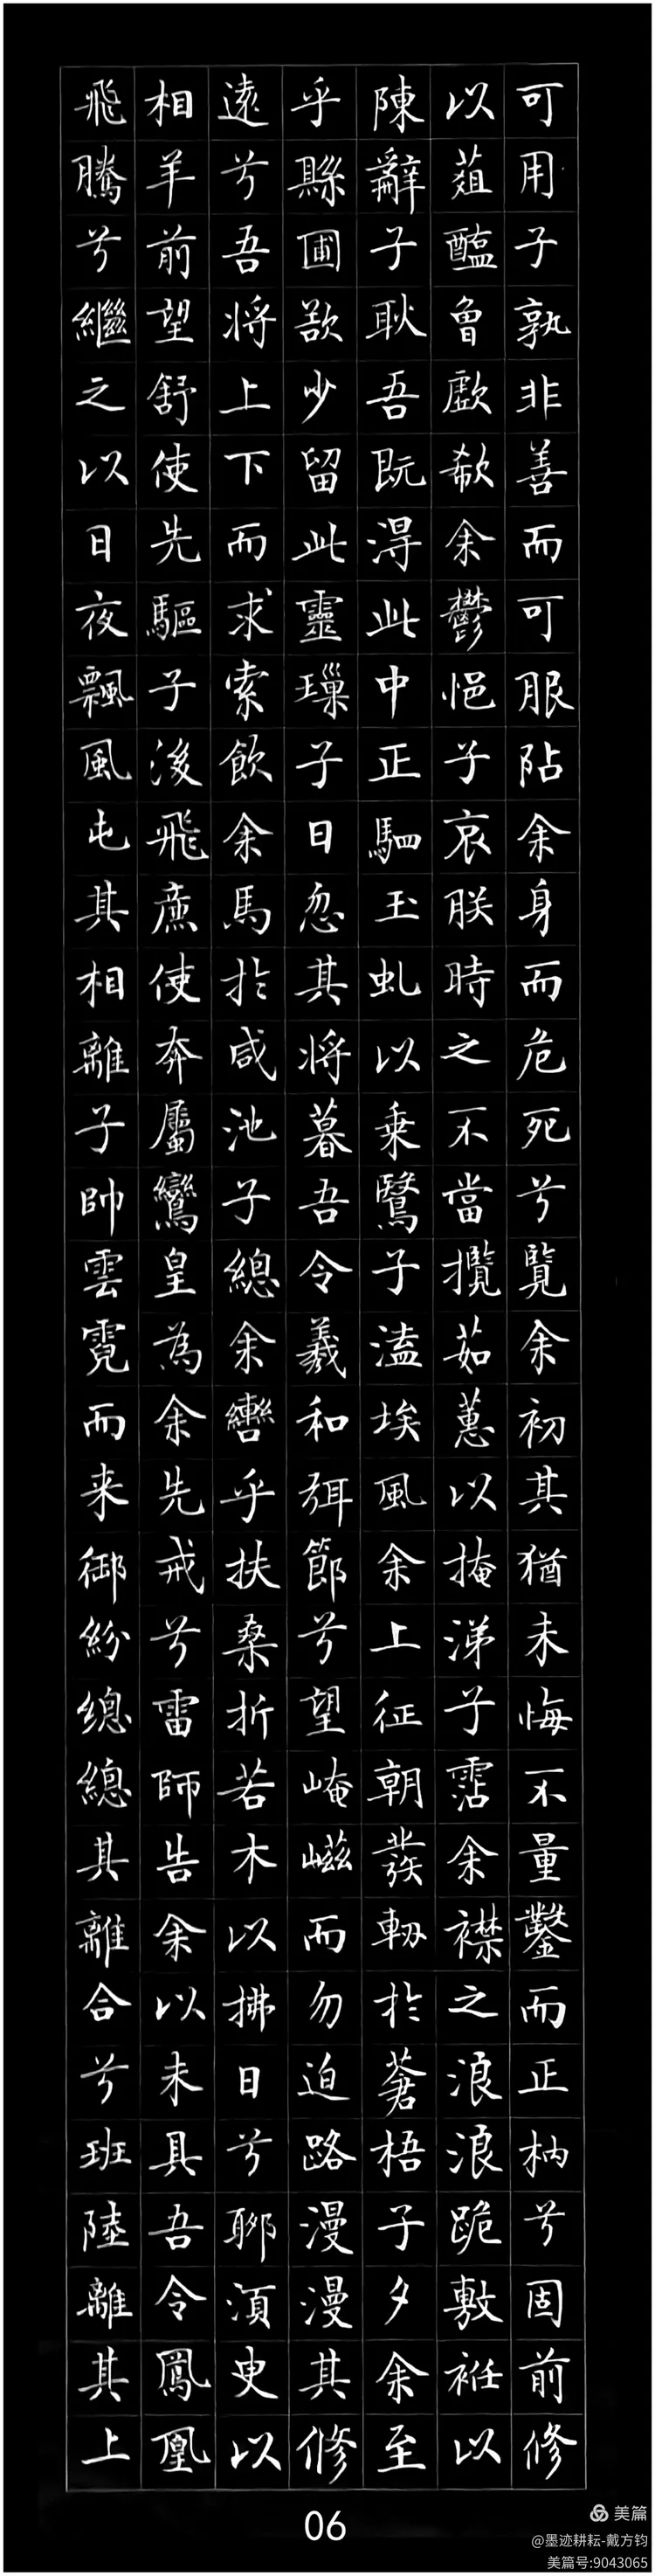 可用子孰非善而可服阽余身而危死兮覧余初其猶未悔不量鑿而正枘兮固前修
以葅醢曾歔欷余鬱悒子哀朕時之不當攬茹蕙以掩涕子霑余襟之浪浪跪敷衽以
陳辭子耿吾既得此中正駟玉虬以乗鷖子溘埃風余上征朝發軔於蒼梧子夕余至
乎縣圃欲少留此靈璅子日忽其将暮吾令羲和弭節兮望崦嵫而勿迫路漫漫其修
遠兮吾将上下而求索飲余馬於咸池子總余轡乎扶桑折若木以拂日兮聊須臾以
相羊前望舒使先驅子後飛廉使奔屬鸞皇為余先戒兮雷師告余以未具吾令鳳凰
飛騰兮繼之以日夜飄風屯其相離子帥雲霓而来御紛總總其離合兮班陸離其上
06
美篇
@墨迹耕耘-戴方钧
美篇号:9043065